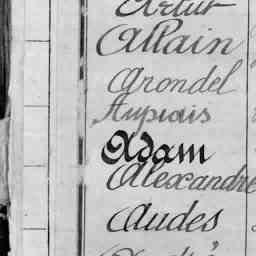 Artur
Allain
Arondel
Aupiais
Adam
Alexandre
Audes